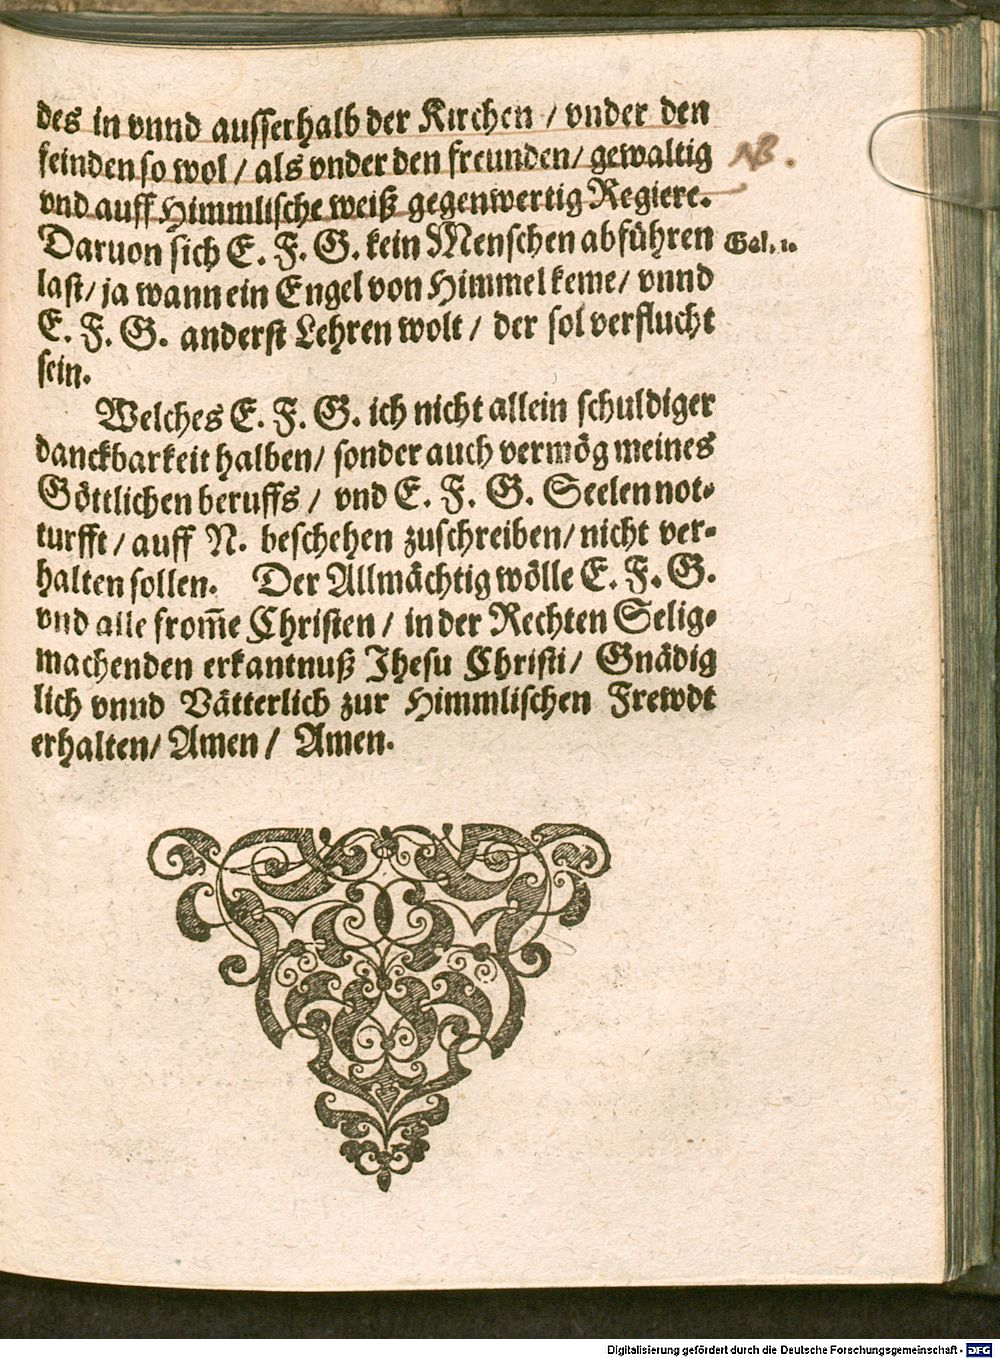 des in vnnd ausserhalb der Kirchen / vnder den
feinden so wol / als vnder den freunden / gewaltig NB.
vnd auff Himmlische weiß gegenwertig Regiere.
Daruon sich E. F. G. kein Menschen abführen Gal. 1.
last / ja wann ein Engel von Himmel keme / vnnd
E. F. G. anderst Lehren wolt / der sol verflucht
sein.
Welches E. F. G. ich nicht allein schuldiger
danckbarkeit halben / sonder auch vermög meines
Göttlichen beruffs / vnd E. F. G. Seelen not⸗
turfft / auff N. beschehen zuschreiben / nicht ver⸗
halten sollen. Der Allmächtig wölle E. F. G.
vnd alle from̄e Christen / in der Rechten Selig⸗
machenden erkantnuß Jhesu Christi / Gnädig
lich vnnd Vätterlich zur Himmlischen Frewdt
erhalten / Amen / Amen.
Digitalisierung gefördert durch die Deutsche Forschungsgemeinschaft - DFG